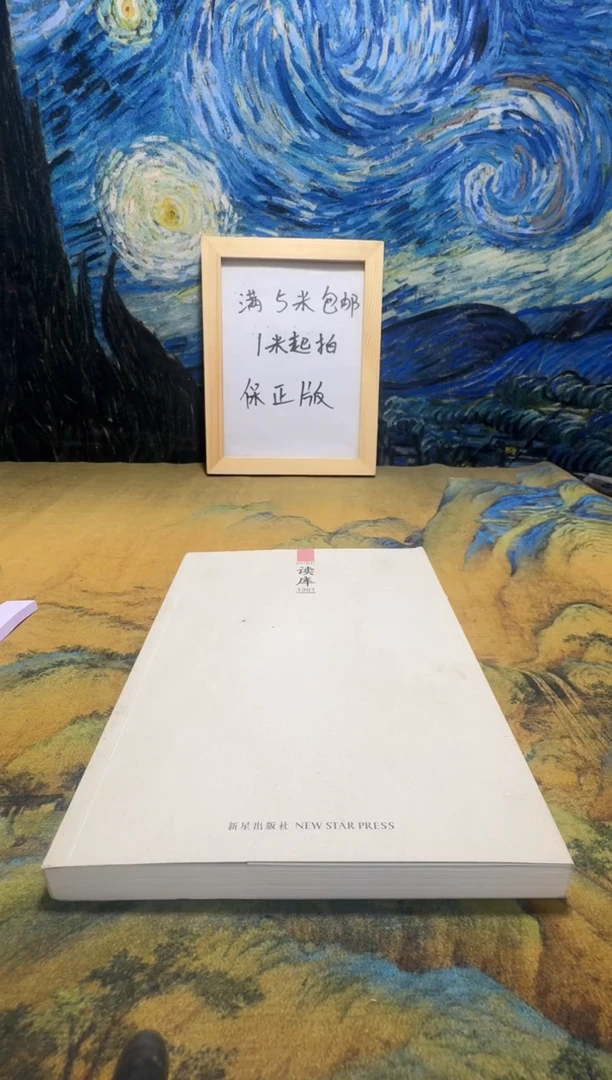 满5米包邮
1米起拍
保正版
读库
1301
新星出版社 NEW STAR PRESS